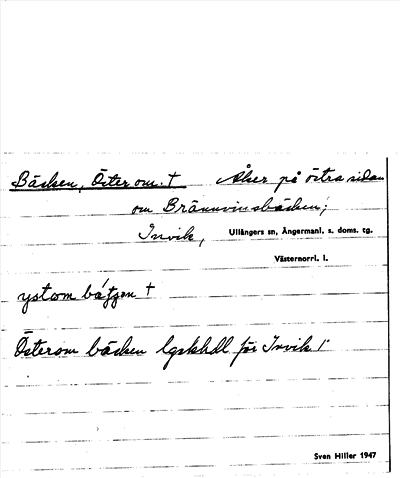 Bäcken, Öster om. † Åker på östra sidan
om Brännvinsbäcken;
Invik, Ullångers sn, Ångermanl. s. doms. tg.
Västernorrl. l.
ystom bä́ttjen †
Österom bäcken lgskhdl för Invik 1:
Sven Hiller 1947